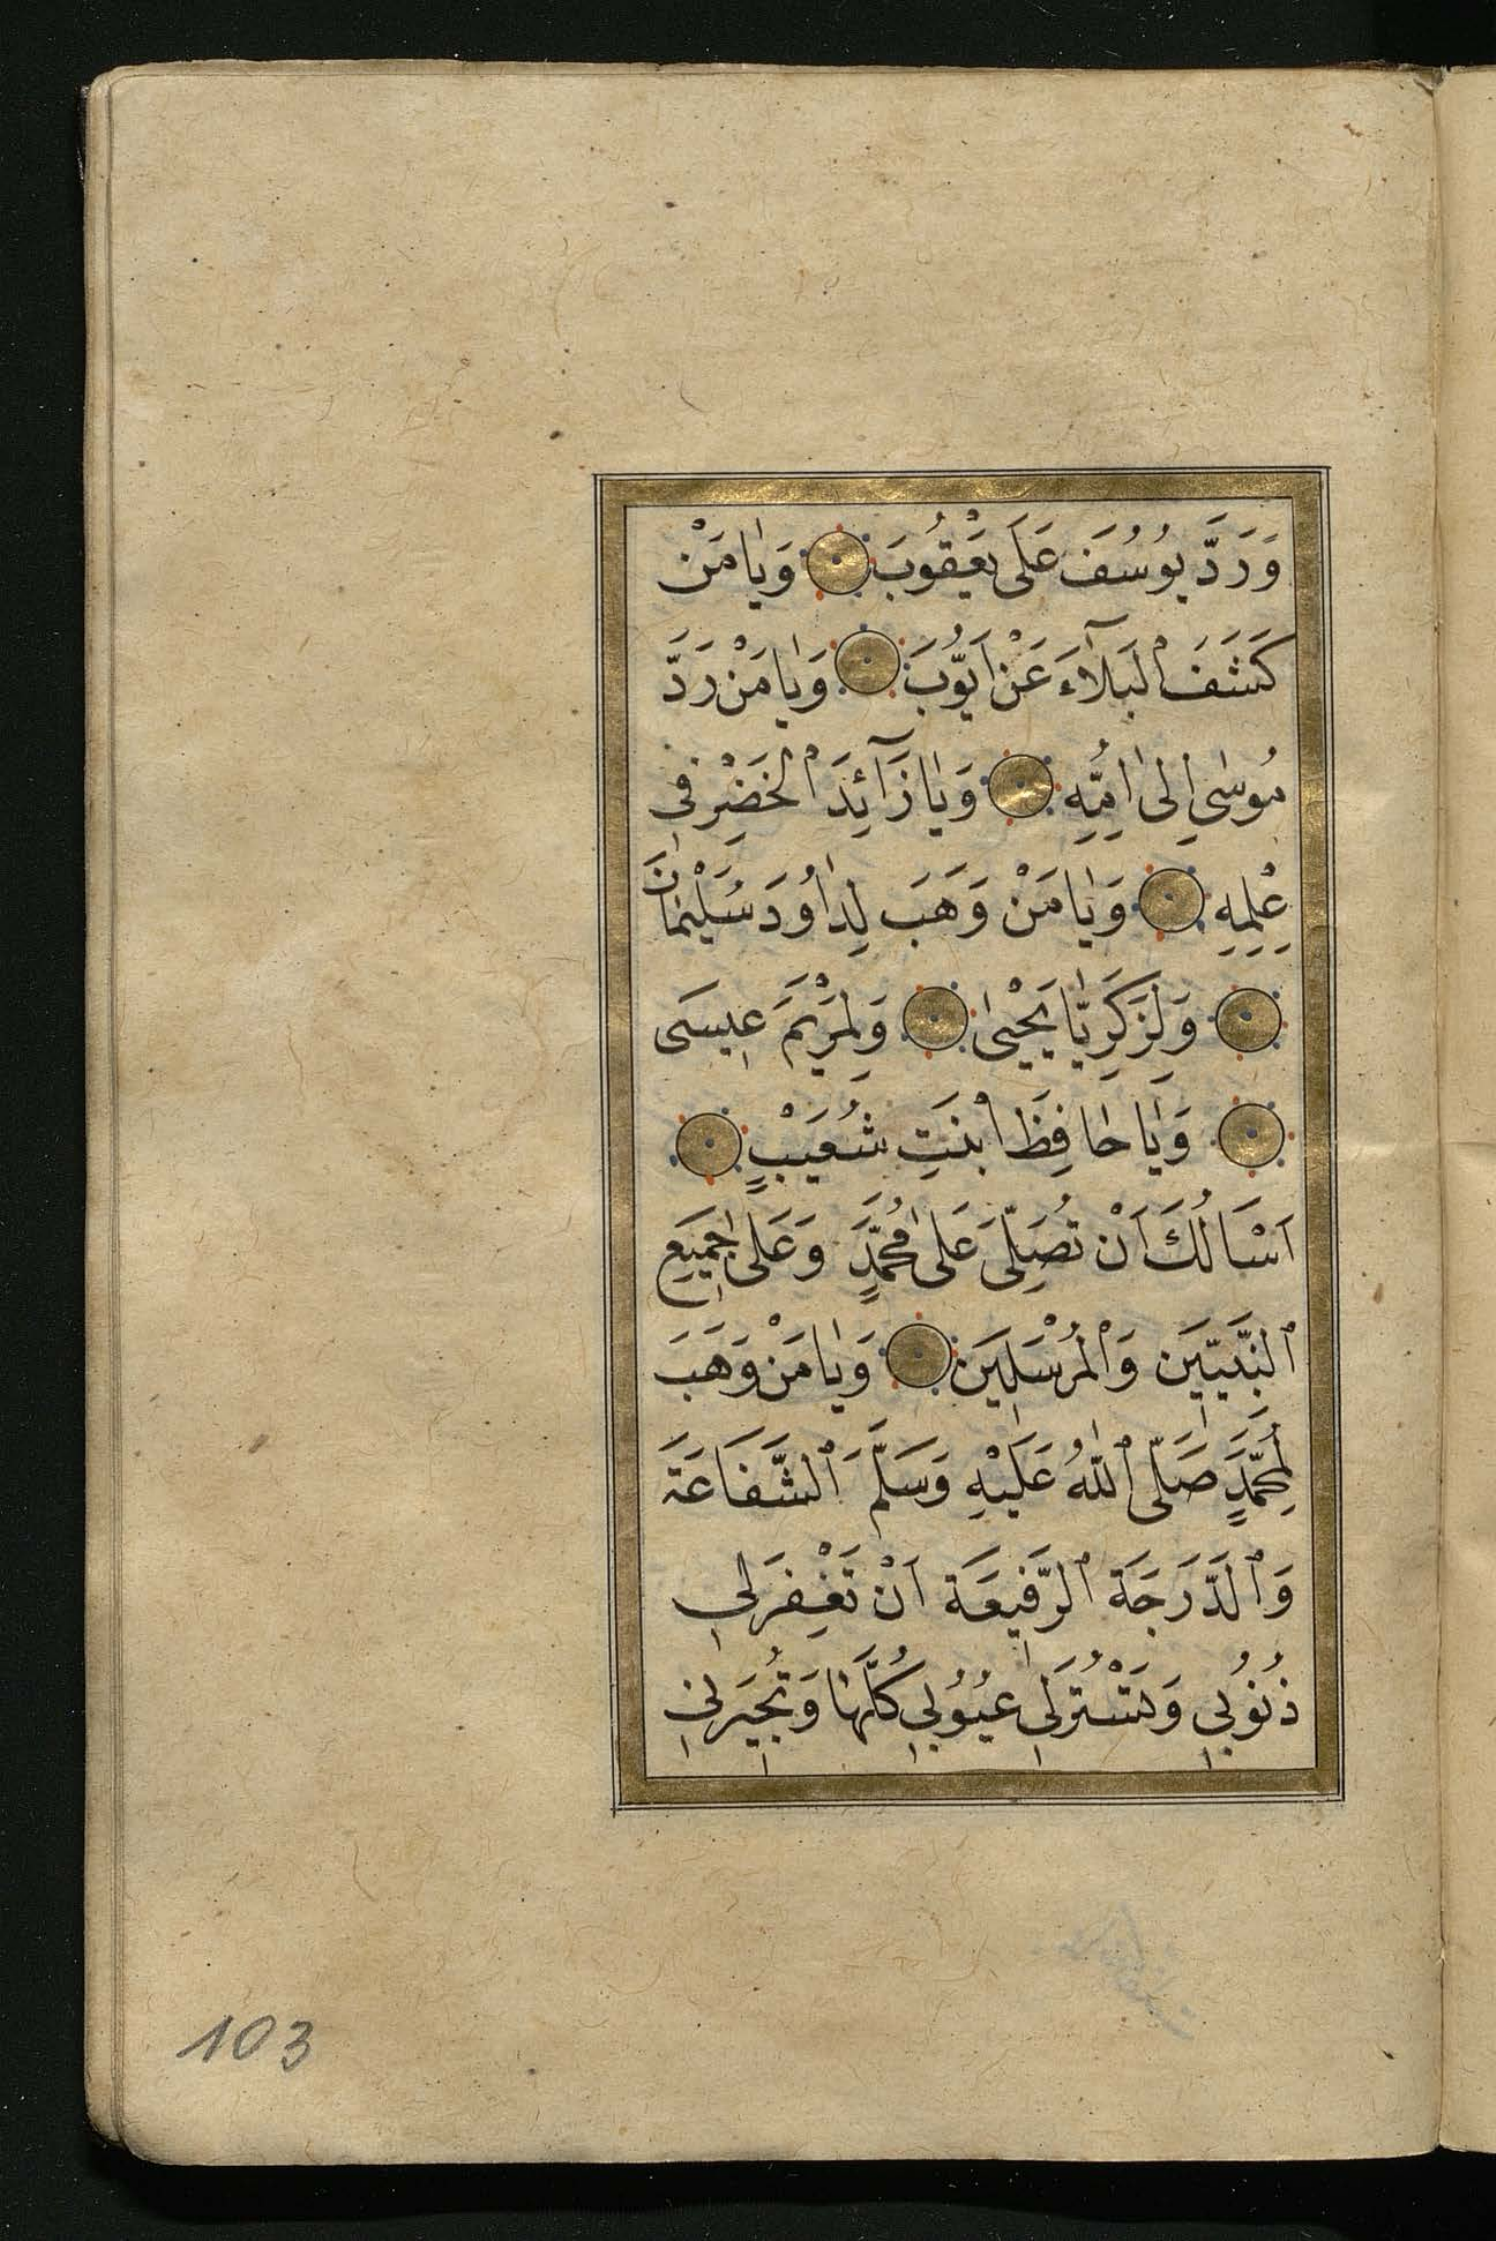 وَرَدَّ يُوسُفَ عَلَى يَعْقُوبَ وَيٰا مَنْ
كَشَفَ الْبَلَآءَ عَنْ اَيُّوبَ وَيٰا مَنْ رَدَّ
مُوسٰى اِلٰى اُمِّهِ وَيٰا زَآئِدَ الْخَضِرِ فِى
عِلْمِهِ وَيٰا مَنْ وَهَبَ لِدٰاوُدَ سُلَيْمٰانَ
وَلِزَكَرِيّٰا يَحْيٰى وَلِمَرْيَمَ عِيسَى
وَيٰا حٰافِظَ ابْنَتِ شُعَيْبٍ
اَسْاَلُكَ اَنْ تُصَلِّىَ عَلٰى مُحَمَّدٍ وَعَلٰى جَمِيعِ
ٱلنَّبِيّينَ وَالْمُرْسَلِينَ وَيٰا مَنْ وَهَبَ
لِمُحَمَّدٍ صَلَّى ٱللّٰهُ عَلَيْهِ وَسَلَّمَ ٱلشَّفَاعَةَ
وَٱلدَّرَجَةَ ٱلرَّفِيعَةَ اَنْ تَغْفِرَ لِى
ذُنُوبِى وَتَسْتُرَ لِى عُيُوبِى كُلَّهٰا وَتُجِيرَنِى
103